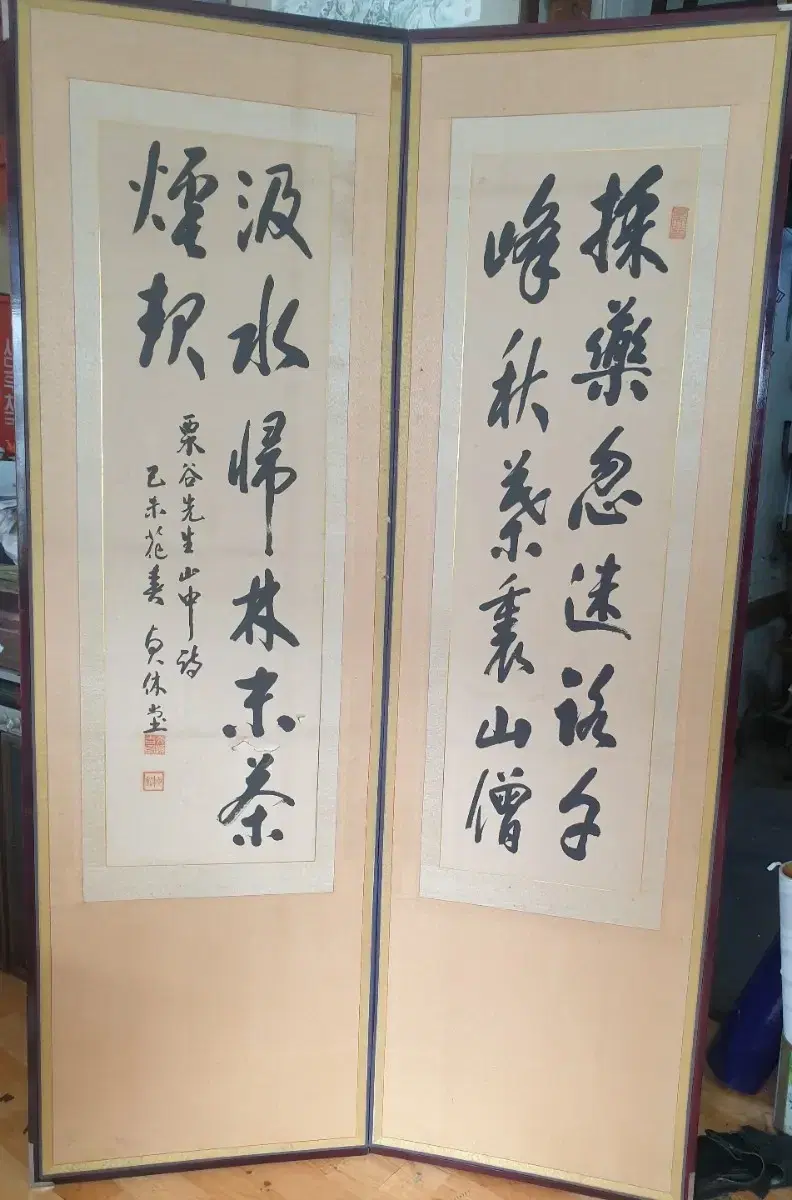 採藥忽迷路千
峰秋葉裏山僧
汲水帰林末茶
煙起
栗谷先生山中詩
己未花春 貞休堂